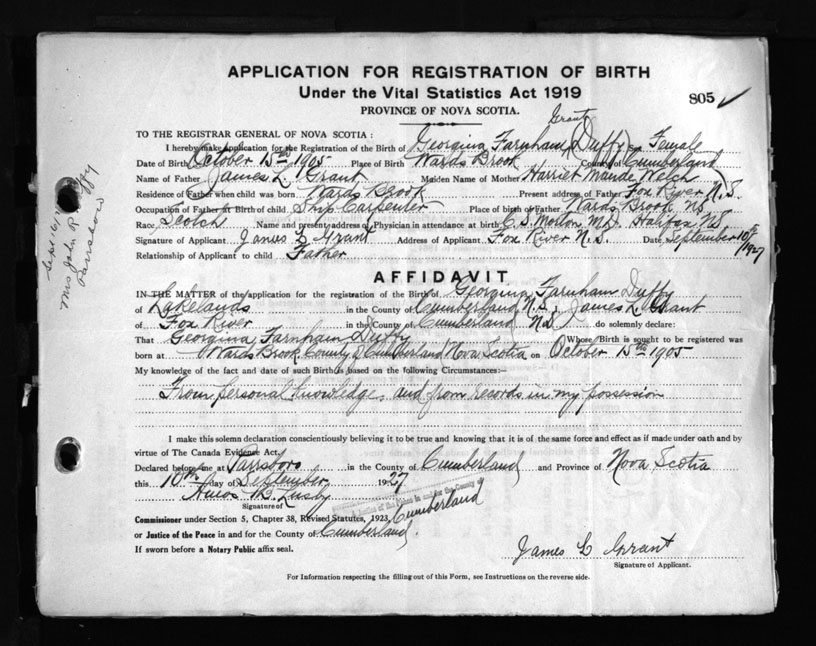 APPLICATION FOR REGISTRATION OF BIRTH
Under the Vital Statistics Act 1919
PROVINCE OF NOVA SCOTIA.
805
Grant
TO THE REGISTRAR GENERAL OF NOVA SCOTIA:
I hereby make application for the Registration of the Birth of Georgina Farnham (Duffy) Sex Female
Date of Birth October 15th 1905 Place of Birth Wards Brook County of Cumberland
Name of Father James L. Grant Maiden Name of Mother Harriet Maude Welch
Residence of Father when child was born Wards Brook Present address of Father Fox River N.S.
Occupation of Father at Birth of child Ship Carpenter Place of birth of Father Wards Brook NS
Race Scotch Name and present address of Physician in attendance at birth C.S. Morton M.D. Halifax NS
Signature of Applicant James L Grant Address of Applicant Fox River N.S. Date September 10th 1927
Relationship of Applicant to child Father
Mrs John R Duffy
Parrsboro
AFFIDAVIT
IN THE MATTER of the application for the registration of the Birth of Georgina Farnham Duffy
of Lakelands in the County of Cumberland N.S., I James L. Grant
of Fox River in the County of Cumberland NS do solemnly declare:
That Georgina Farnham Duffy Whose Birth is sought to be registered was
born at Wards Brook County of Cumberland Nova Scotia on October 15th 1905
My knowledge of the fact and date of such Birth is based on the following Circumstances:—
From personal knowledge, and from records in my possession
I make this solemn declaration conscientiously believing it to be true and knowing that it is of the same force and effect as if made under oath and by
virtue of The Canada Evidence Act.
Declared before me at Parrsboro in the County of Cumberland and Province of Nova Scotia
this 10th day of September 1927
Amos B. Lusby
Signature of
A Justice of the Peace in and for the County of
Cumberland
Commissioner under Section 5, Chapter 38, Revised Statutes, 1923,
or Justice of the Peace in and for the County of Cumberland.
If sworn before a Notary Public affix seal.
James L Grant
Signature of Applicant.
For Information respecting the filling out of this Form, see Instructions on the reverse side.